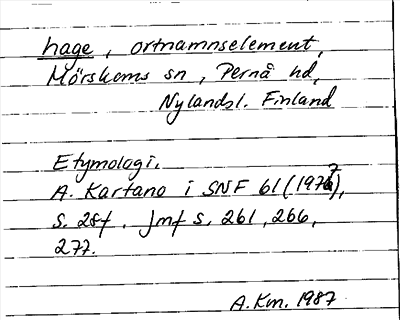 hage, ortnamnselement,
Mörskoms sn, Pernå hd,
Nylandsl. Finland
Etymologi.
A. Kartano i SNF 61 (1977),
s. 28f. Jmf s. 261, 266,
277.
A.Km. 1987